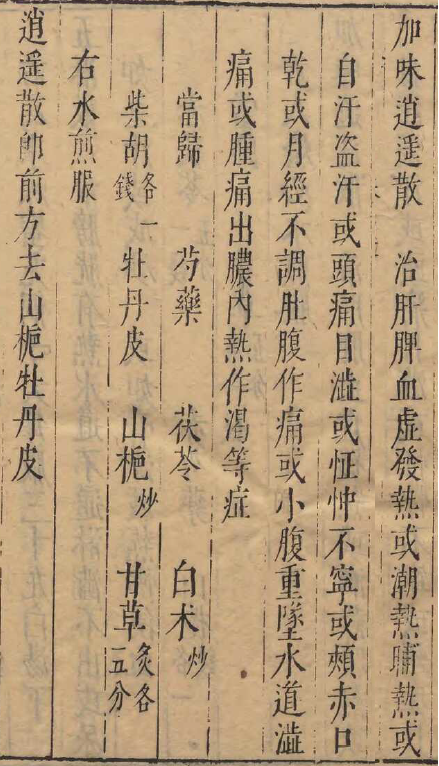 加味逍遥散 治肝脾血虛發熱或潮熱晡熱或
自汗盗汗或頭痛目澁或怔忡不寧或頰赤口
乾或月經不調肚腹作痛或小腹重墜水道澁
痛或腫痛出膿內熱作渴等症
當歸 芍藥 茯苓 白术炒
柴胡各一錢 牡丹皮 山梔炒 甘草炙各五分
右水煎服
逍遥散卽前方去山梔牡丹皮